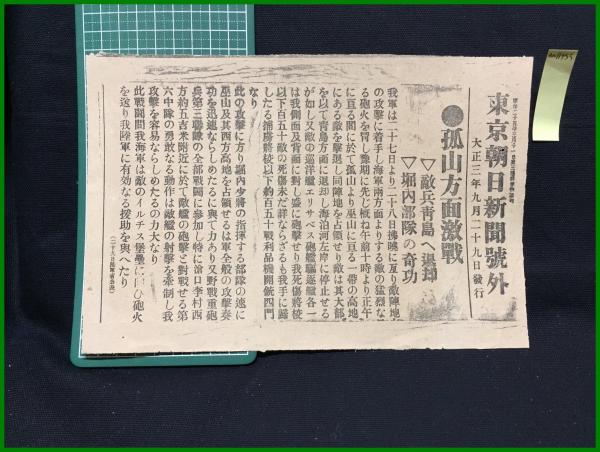 東京朝日新聞號外
大正三年九月二十九日發行
●孤山方面激戰
▽敵兵靑島へ退却
▽堀內部隊の奇功
我軍は二十七日より二十八日拂曉に亙り敵陣地
の攻擊に着手し海軍兩方面よりする敵の猛烈な
る砲火を冒し豫期に先ち概ね午前十時より正午
に亙る間に於て孤山より巫山に亙る一帶の高地
にある敵を擊退し同陣地を占領せり敵は其大部
を以て靑島方面に退却し海泊河左岸に停止せる
が如し又敵の巡洋艦エリサベス砲艦驅逐艦各一
は我側面及背面に對し盛に砲擊せり我死傷將校
以下百五十敵の死傷未だ詳ならざるも我手に歸
したる捕虜將校以下約五十戰利品機關銃四門
なり
此の攻擊に方り堀內少將の指揮する部隊の速に
巫山及其西方高地を占領せるは軍全般の攻擊奏
功を迅速ならしめたるに與て力あり又野戰重砲
兵第三聯隊の全部戰鬪に參加し殊に滄口李村西
方約五吉米附近に於て敵艦の砲擊と對戰せる第
六中隊の勇敢なる動作は敵艦の射擊を牽制し我
攻擊を容易ならしめたるの力大なり
此戰鬪間我海軍は敵のイルチス堡壘に向ひ砲火
を送り我陸軍に有効なる援助を與へたり